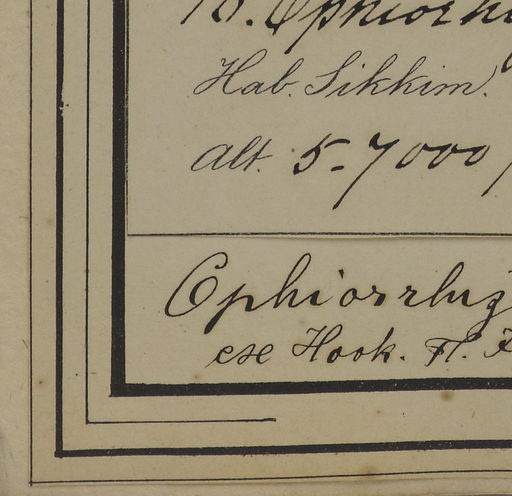 18. Ophiorrhi
Hab. Sikkim.
Alt. 5-7000
Ophiorrhiz
ex Hook. Fl.